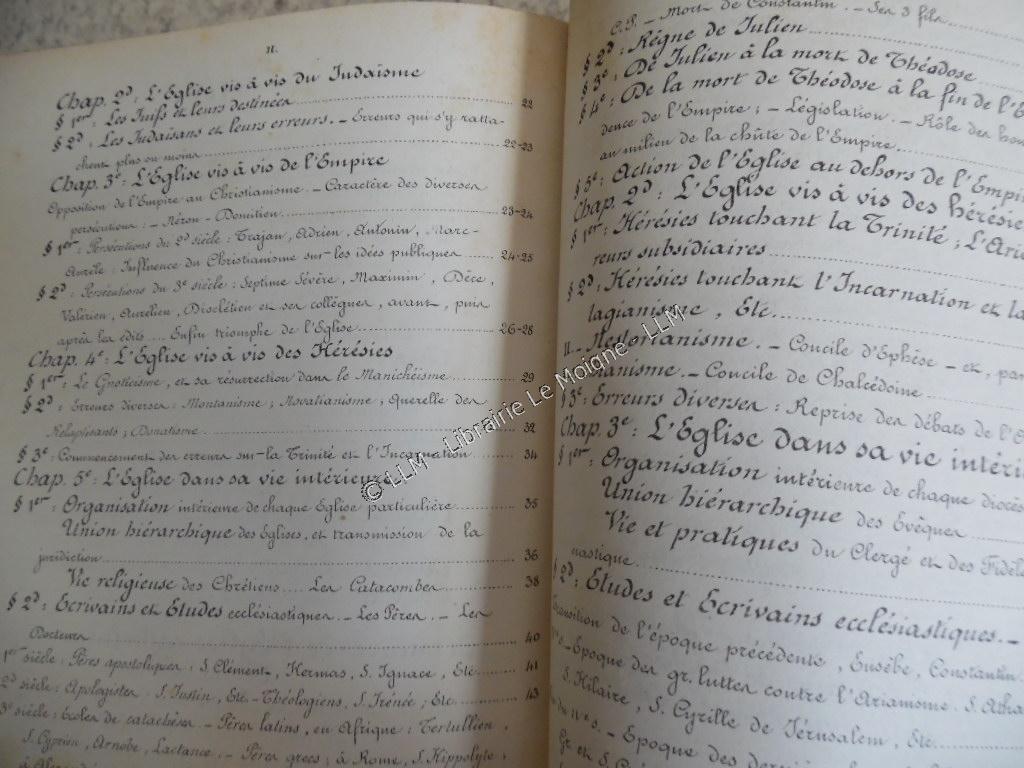 II.
Chap. 2d: L'Eglise vis à vis du Judaïsme
§ 1er: Les Juifs et leurs destinées 22
§ 2d: Les Judaïsans et leurs erreurs. - Erreurs qui s'y ratta-
chent plus ou moins 22-23
Chap. 3e: L'Eglise vis à vis de l'Empire
Opposition de l'Empire au Christianisme. - Caractère des diverses
persécutions. - Néron - Domitien 23-24
§ 1er: Persécutions du 2d siècle: Trajan, Adrien, Antonin, Marc-
Aurèle: Influence du Christianisme sur les idées publiques 24-25
§ 2d: Persécutions du 3e siècle: Septime Sévère, Maximin, Dèce,
Valérien, Aurélien, Dioclétien et ses collègues, avant, puis
après les édits... Enfin triomphe de l'Eglise 26-28
Chap. 4e: L'Eglise vis à vis des Hérésies
§ 1er: Le Gnosticisme, et sa résurrection dans le Manichéisme 29
§ 2d: Erreurs diverses: Montanisme; Novatianisme; Querelle des
Rebaptisants; Donatisme 32
§ 3e: Commencement des erreurs sur la Trinité et l'Incarnation 34
Chap. 5e: L'Eglise dans sa vie intérieure
§ 1er: Organisation intérieure de chaque Eglise particulière 35
Union hiérarchique des Eglises, et transmission de la
juridiction 36
Vie religieuse des Chrétiens.... Les Catacombes 38
§ 2d: Ecrivains et Etudes ecclésiastiques. - Les Pères. - Les
Docteurs 40
1er siècle: Pères apostoliques, S. Clément, Hermas, S. Ignace, Etc 41
2d siècle: Apologistes, S. Justin, Etc. - Théologiens, S. Irénée, Etc. 43
3e siècle: Ecoles de catachèses. - Pères latins, en Afrique: Tertullien,
S. Cyprien, Arnobe, Lactance. - Pères grecs; à Rome, S. Hippolyte;
C.P. - Mort de Constantin. - Ses 3 fils
§ 2d: Règne de Julien
§ 3e: De Julien à la mort de Théodose
§ 4e: De la mort de Théodose à la fin de l'E
dence de l'Empire; - Législation. - Rôle des
au milieu de la chûte de l'Empire.
§ 5e: Action de l'Eglise au dehors de l'Empir
Chap. 2d: L'Eglise vis à vis des hérésie
§ 1er: Hérésies touchant la Trinité; L'Aria
reurs subsidiaires
§ 2d: Hérésies touchant l'Incarnation et la
lagianisme, Etc
II - Nestorianisme. - Concile d'Ephèse - et, par
anisme. - Concile de Chalcédoine
§ 3e: Erreurs diverses: Reprise des débats de l'O
Chap. 3e: L'Eglise dans sa vie intéri
§ 1er: Organisation intérieure de chaque diocès
Union hiérarchique des Evêques
Vie et pratiques du Clergé et des Fidèl
nastique
§ 2d: Etudes et Ecrivains ecclésiastiques. -
Transition de l'époque précédente, Eusèbe, Constantin
- Epoque des gr. luttes contre l'Arianisme. S. Atha
S. Hilaire, S. Cyrille de Jérusalem, Etc
- Epoque des
© LLM - Librairie Le Moigne - LLM